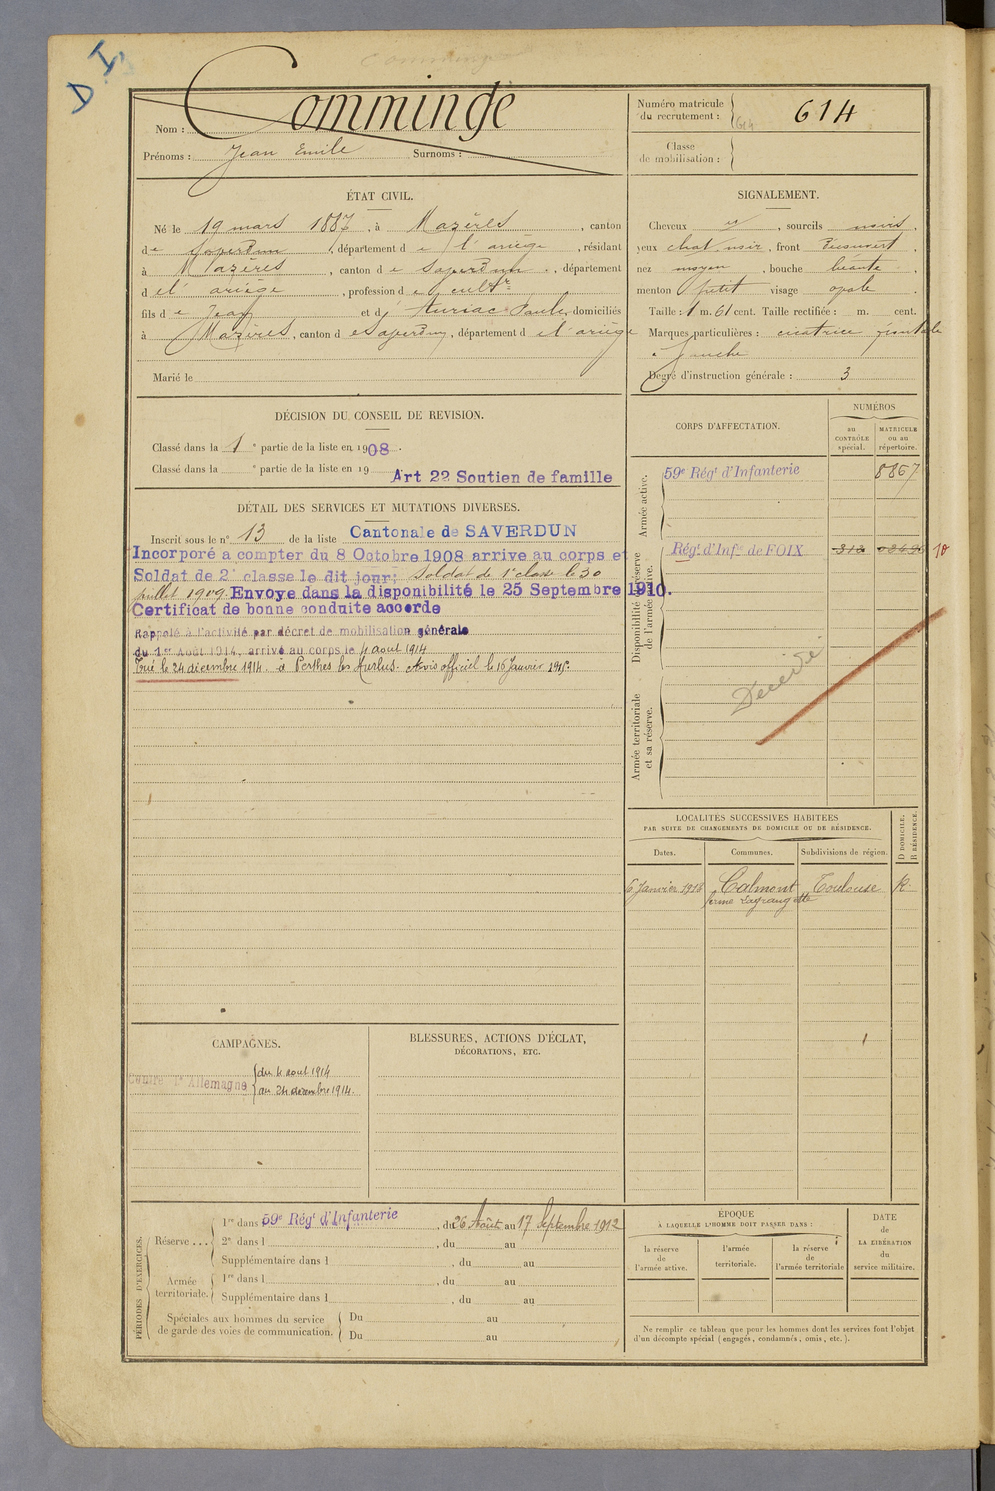 D I,
Comminge
Nom : Comminge
Prénoms : Jean Emile Surnoms :
Numéro matricule
du recrutement : 614
Classe
de mobilisation :
ÉTAT CIVIL.
Né le 19 mars 1887, à Mazères, canton
de Saverdun, département de l'ariège, résidant
à Mazères, canton de Saverdun, département
d el' ariège, profession de cultr
fils de Jean et d' Auriac Paule, domiciliés
à Mazères, canton de Saverdun, département d el' ariège
Marié le
SIGNALEMENT.
Cheveux et, sourcils noirs,
yeux chat. noir, front Découvert,
nez moyen, bouche béante,
menton petit visage ovale
Taille : 1 m. 61 cent. Taille rectifiée : m. cent.
Marques particulières : cicatrice frontale
à gauche
Degré d'instruction générale : 3
DÉCISION DU CONSEIL DE REVISION.
Classé dans la 1e partie de la liste en 1908.
Classé dans la e partie de la liste en 19
Art 22 Soutien de famille
DÉTAIL DES SERVICES ET MUTATIONS DIVERSES.
Inscrit sous le n° 13 de la liste Cantonale de SAVERDUN
Incorporé a compter du 8 Octobre 1908 arrive au corps et
Soldat de 2e classe le dit jour; Soldat de 1e classe le 30
juillet 1909. Envoye dans la disponibilité le 25 Septembre 1910.
Certificat de bonne conduite accorde
Rappelé à l'activité par décret de mobilisation générale
du 1er Août 1914, arrivé au corps le 4 aout 1914
Tué le 24 décembre 1914. à Perthes les Hurlus. Avis officiel le 15 Janvier 1915.
CORPS D'AFFECTATION.
NUMÉROS
au
CONTRÔLE
spécial.
MATRICULE
ou au
répertoire.
Armée active.
59e Régt d'Infanterie 8867
Disponibilité et réserve
de l'armée active.
Régt d'Infie de FOIX 312 10
Armée territoriale
et sa réserve.
Décédé
LOCALITÉS SUCCESSIVES HABITÉES
PAR SUITE DE CHANGEMENTS DE DOMICILE OU DE RÉSIDENCE.
Dates. Communes. Subdivisions de région.
D DOMICILE.
R RÉSIDENCE.
6 Janvier 1914 Calmont Toulouse R
ferme Lagrangette
CAMPAGNES.
Contre l'Allemagne du 4 aout 1914
au 24 décembre 1914.
BLESSURES, ACTIONS D'ÉCLAT,
DÉCORATIONS, ETC.
PÉRIODES D'EXERCICES.
Réserve...
1re dans 59e Régt d'Infanterie, du 26 Août au 17 Septembre 1912
2e dans l , du au
Supplémentaire dans l , du au
Armée
territoriale.
1re dans l , du au
Supplémentaire dans l , du au
Spéciales aux hommes du service
de garde des voies de communication.
Du au
Du au
ÉPOQUE
À LAQUELLE L'HOMME DOIT PASSER DANS :
la réserve
de
l'armée active.
l'armée
territoriale.
la réserve
de
l'armée territoriale
DATE
de
LA LIBÉRATION
du
service militaire.
Ne remplir ce tableau que pour les hommes dont les services font l'objet
d'un décompte spécial (engagés, condamnés, omis, etc.).